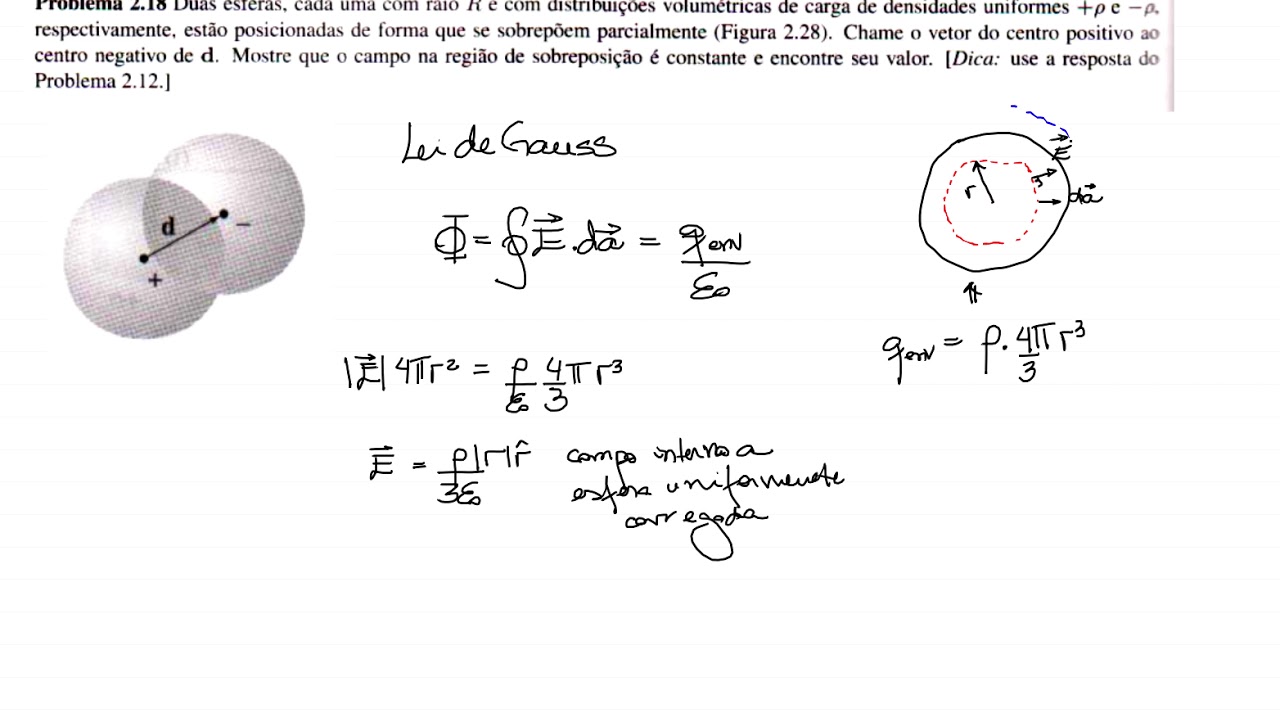 Problema 2.18 Duas esferas, cada uma com raio R e com distribuições volumétricas de carga de densidades uniformes +ρ e −ρ,
respectivamente, estão posicionadas de forma que se sobrepõem parcialmente (Figura 2.28). Chame o vetor do centro positivo ao
centro negativo de d. Mostre que o campo na região de sobreposição é constante e encontre seu valor. [Dica: use a resposta do
Problema 2.12.]
Lei de Gauss
d
−
+
Φ = ∮E⃗.da⃗ = qenv/ε₀
r
E⃗
da⃗
qenv = ρ.4π/3 r³
|E⃗| 4πr² = ρ/ε₀ 4/3 π r³
E⃗ = ρ|r|r̂/3ε₀ campo interno a
esfera uniformemente
carregada